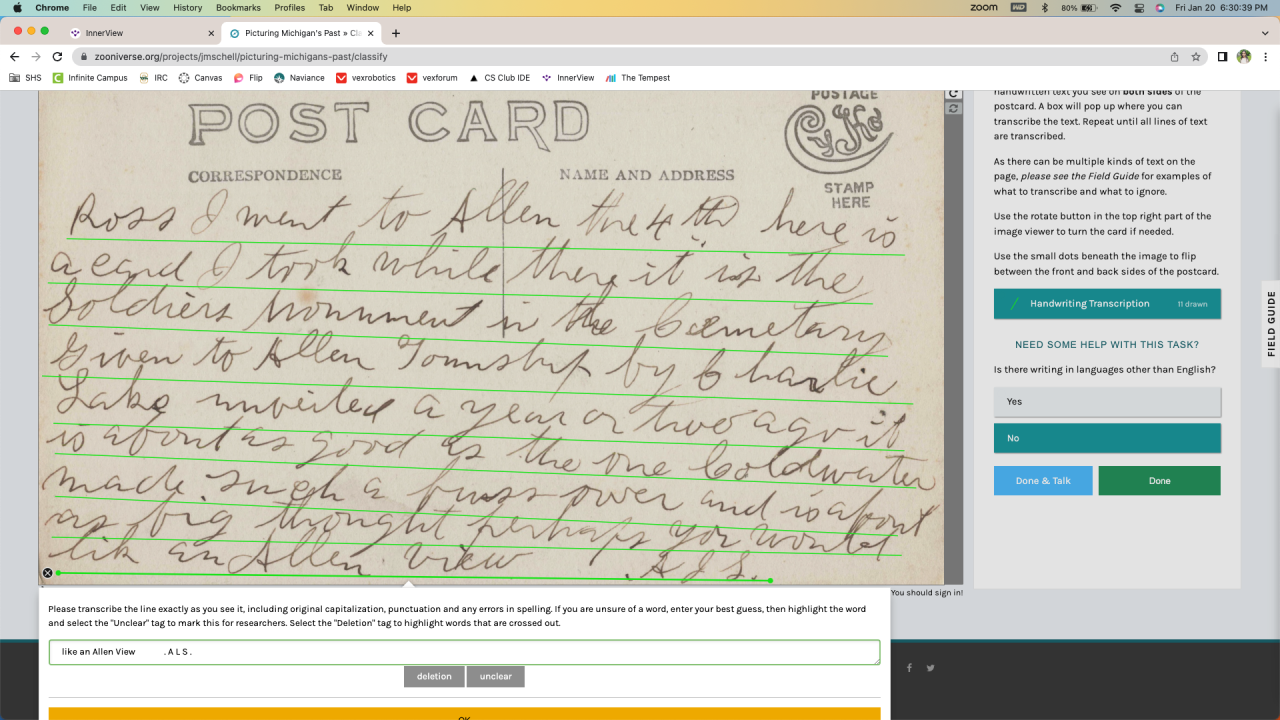 Chrome File Edit View History Bookmarks Profiles Tab Window Help
zoom 80% Fri Jan 20 6:30:39 PM
InnerView
Picturing Michigan's Past » Cla
zooniverse.org/projects/jmschell/picturing-michigans-past/classify
SHS Infinite Campus IRC Canvas Flip Naviance vexrobotics vexforum CS Club IDE InnerView The Tempest
POST CARD
POSTAGE
CYKO
STAMP
HERE
CORRESPONDENCE
NAME AND ADDRESS
Ross I went to Allen the 4th here is
a card I took while there it is the
Soldiers Monument in the Cemetary
Given to Allen Township by Charlie
Lake unveiled a year or two ago it
is about as good as the one Coldwater
made such a fuss over and is about
as big thought perhaps you would
lik an Allen view . A J S.
handwritten text you see on both sides of the
postcard. A box will pop up where you can
transcribe the text. Repeat until all lines of text
are transcribed.
As there can be multiple kinds of text on the
page, please see the Field Guide for examples of
what to transcribe and what to ignore.
Use the rotate button in the top right part of the
image viewer to turn the card if needed.
Use the small dots beneath the image to flip
between the front and back sides of the postcard.
Handwriting Transcription 11 drawn
NEED SOME HELP WITH THIS TASK?
Is there writing in languages other than English?
Yes
No
Done & Talk
Done
FIELD GUIDE
You should sign in!
Please transcribe the line exactly as you see it, including original capitalization, punctuation and any errors in spelling. If you are unsure of a word, enter your best guess, then highlight the word
and select the "Unclear" tag to mark this for researchers. Select the "Deletion" tag to highlight words that are crossed out.
like an Allen View . A L S .
deletion
unclear
OK